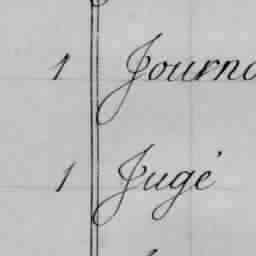 1 Journa
1 Jugé